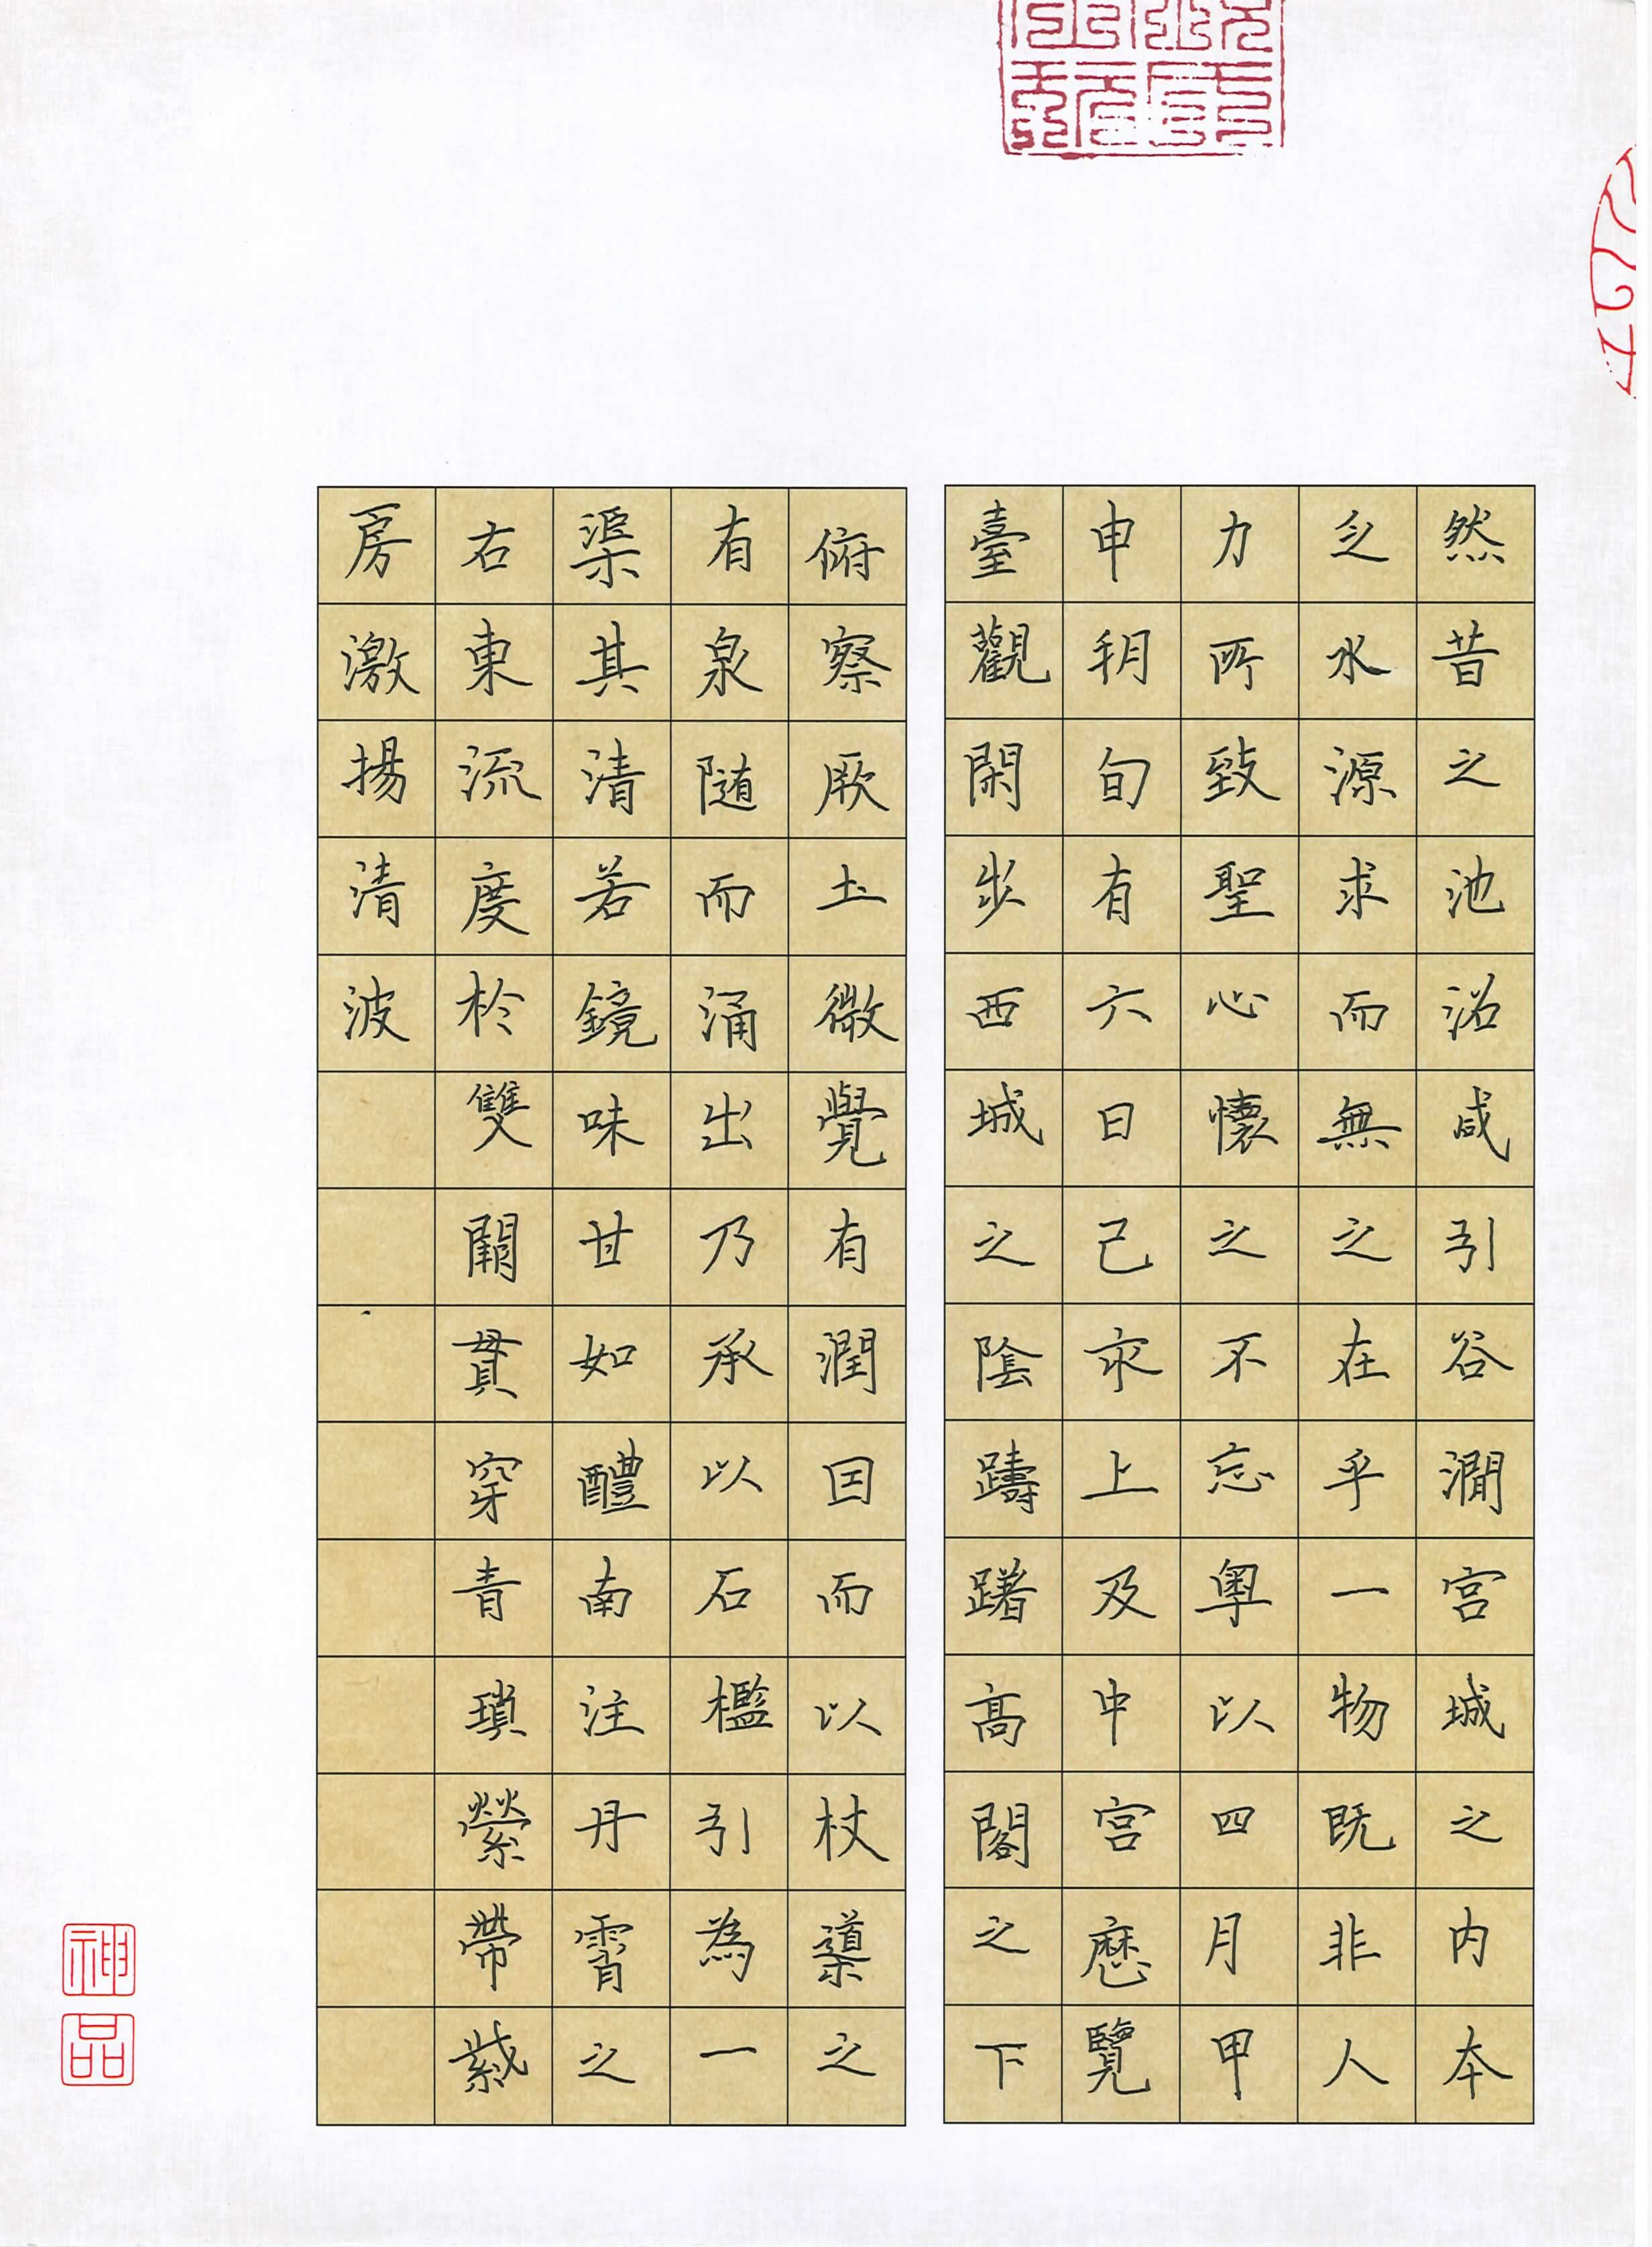 然昔之池沼咸引谷澗宮城之内本
乏水源求而無之在乎一物既非人
力所致聖心懷之不忘粵以四月甲
申朔旬有六日己亥上及中宮歷覽
臺觀閑步西城之陰躊躇高閣之下
俯察厥土微覺有潤因而以杖導之
有泉隨而涌出乃承以石檻引為一
渠其清若鏡味甘如醴南注丹霄之
右東流度於雙闕貫穿青瑣縈帶紫
房激揚清波
神品